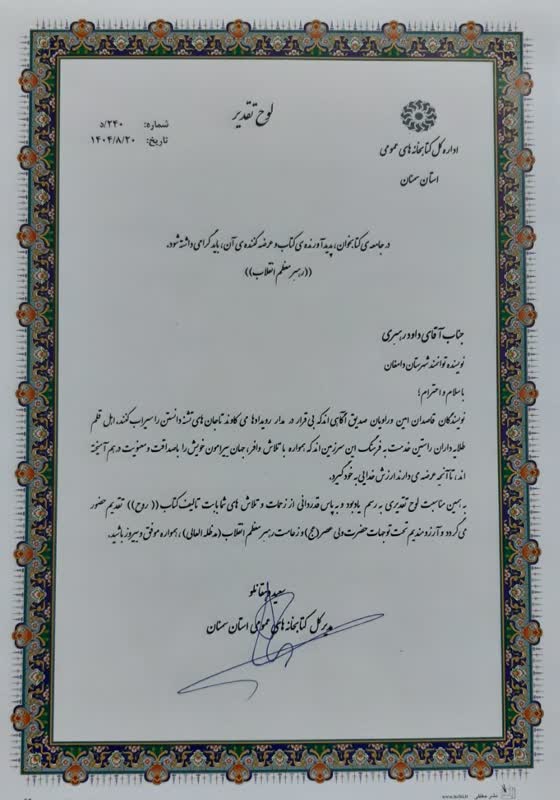 لوح تقدیر
شماره: ۲۴۰/د
تاریخ: ۱۴۰۴/۸/۲۰
اداره کل کتابخانه های عمومی
استان سمنان
در جامعه ی کتابخوان، پدیدآورنده ی کتاب و عرضه کننده ی آن، باید گرامی داشته شود.
((رهبر معظم انقلاب))
جناب آقای داود رهبری
نویسنده توانمند شهرستان دامغان
با سلام و احترام؛
نویسندگان قاصدان امین و راویان صدیق آگاهی اند که بی قرار در مدار رویدادها می کاوند تا جان های تشنه دانستن را سیراب کنند. اهل قلم
طلایه داران راستین خدمت به فرهنگ این سرزمین اند که همواره با تلاش وافر، جهان پیرامون خویش را با صداقت و معنویت درهم آمیخته
اند، تا آنچه عرضه می دارند ارزش فدایی به خود گیرد.
به همین مناسبت لوح تقدیری به رسم یادبود و به پاس قدردانی از زحمات و تلاش های شما بابت تالیف کتاب ((روح)) تقدیم حضور
می گردد و آرزومندیم تحت توجهات حضرت ولی عصر (عج) و زعامت رهبر معظم انقلاب (مدظله العالی)، همواره موفق و پیروز باشید.
سعید
مدیر کل کتابخانه های عمومی استان سمنان